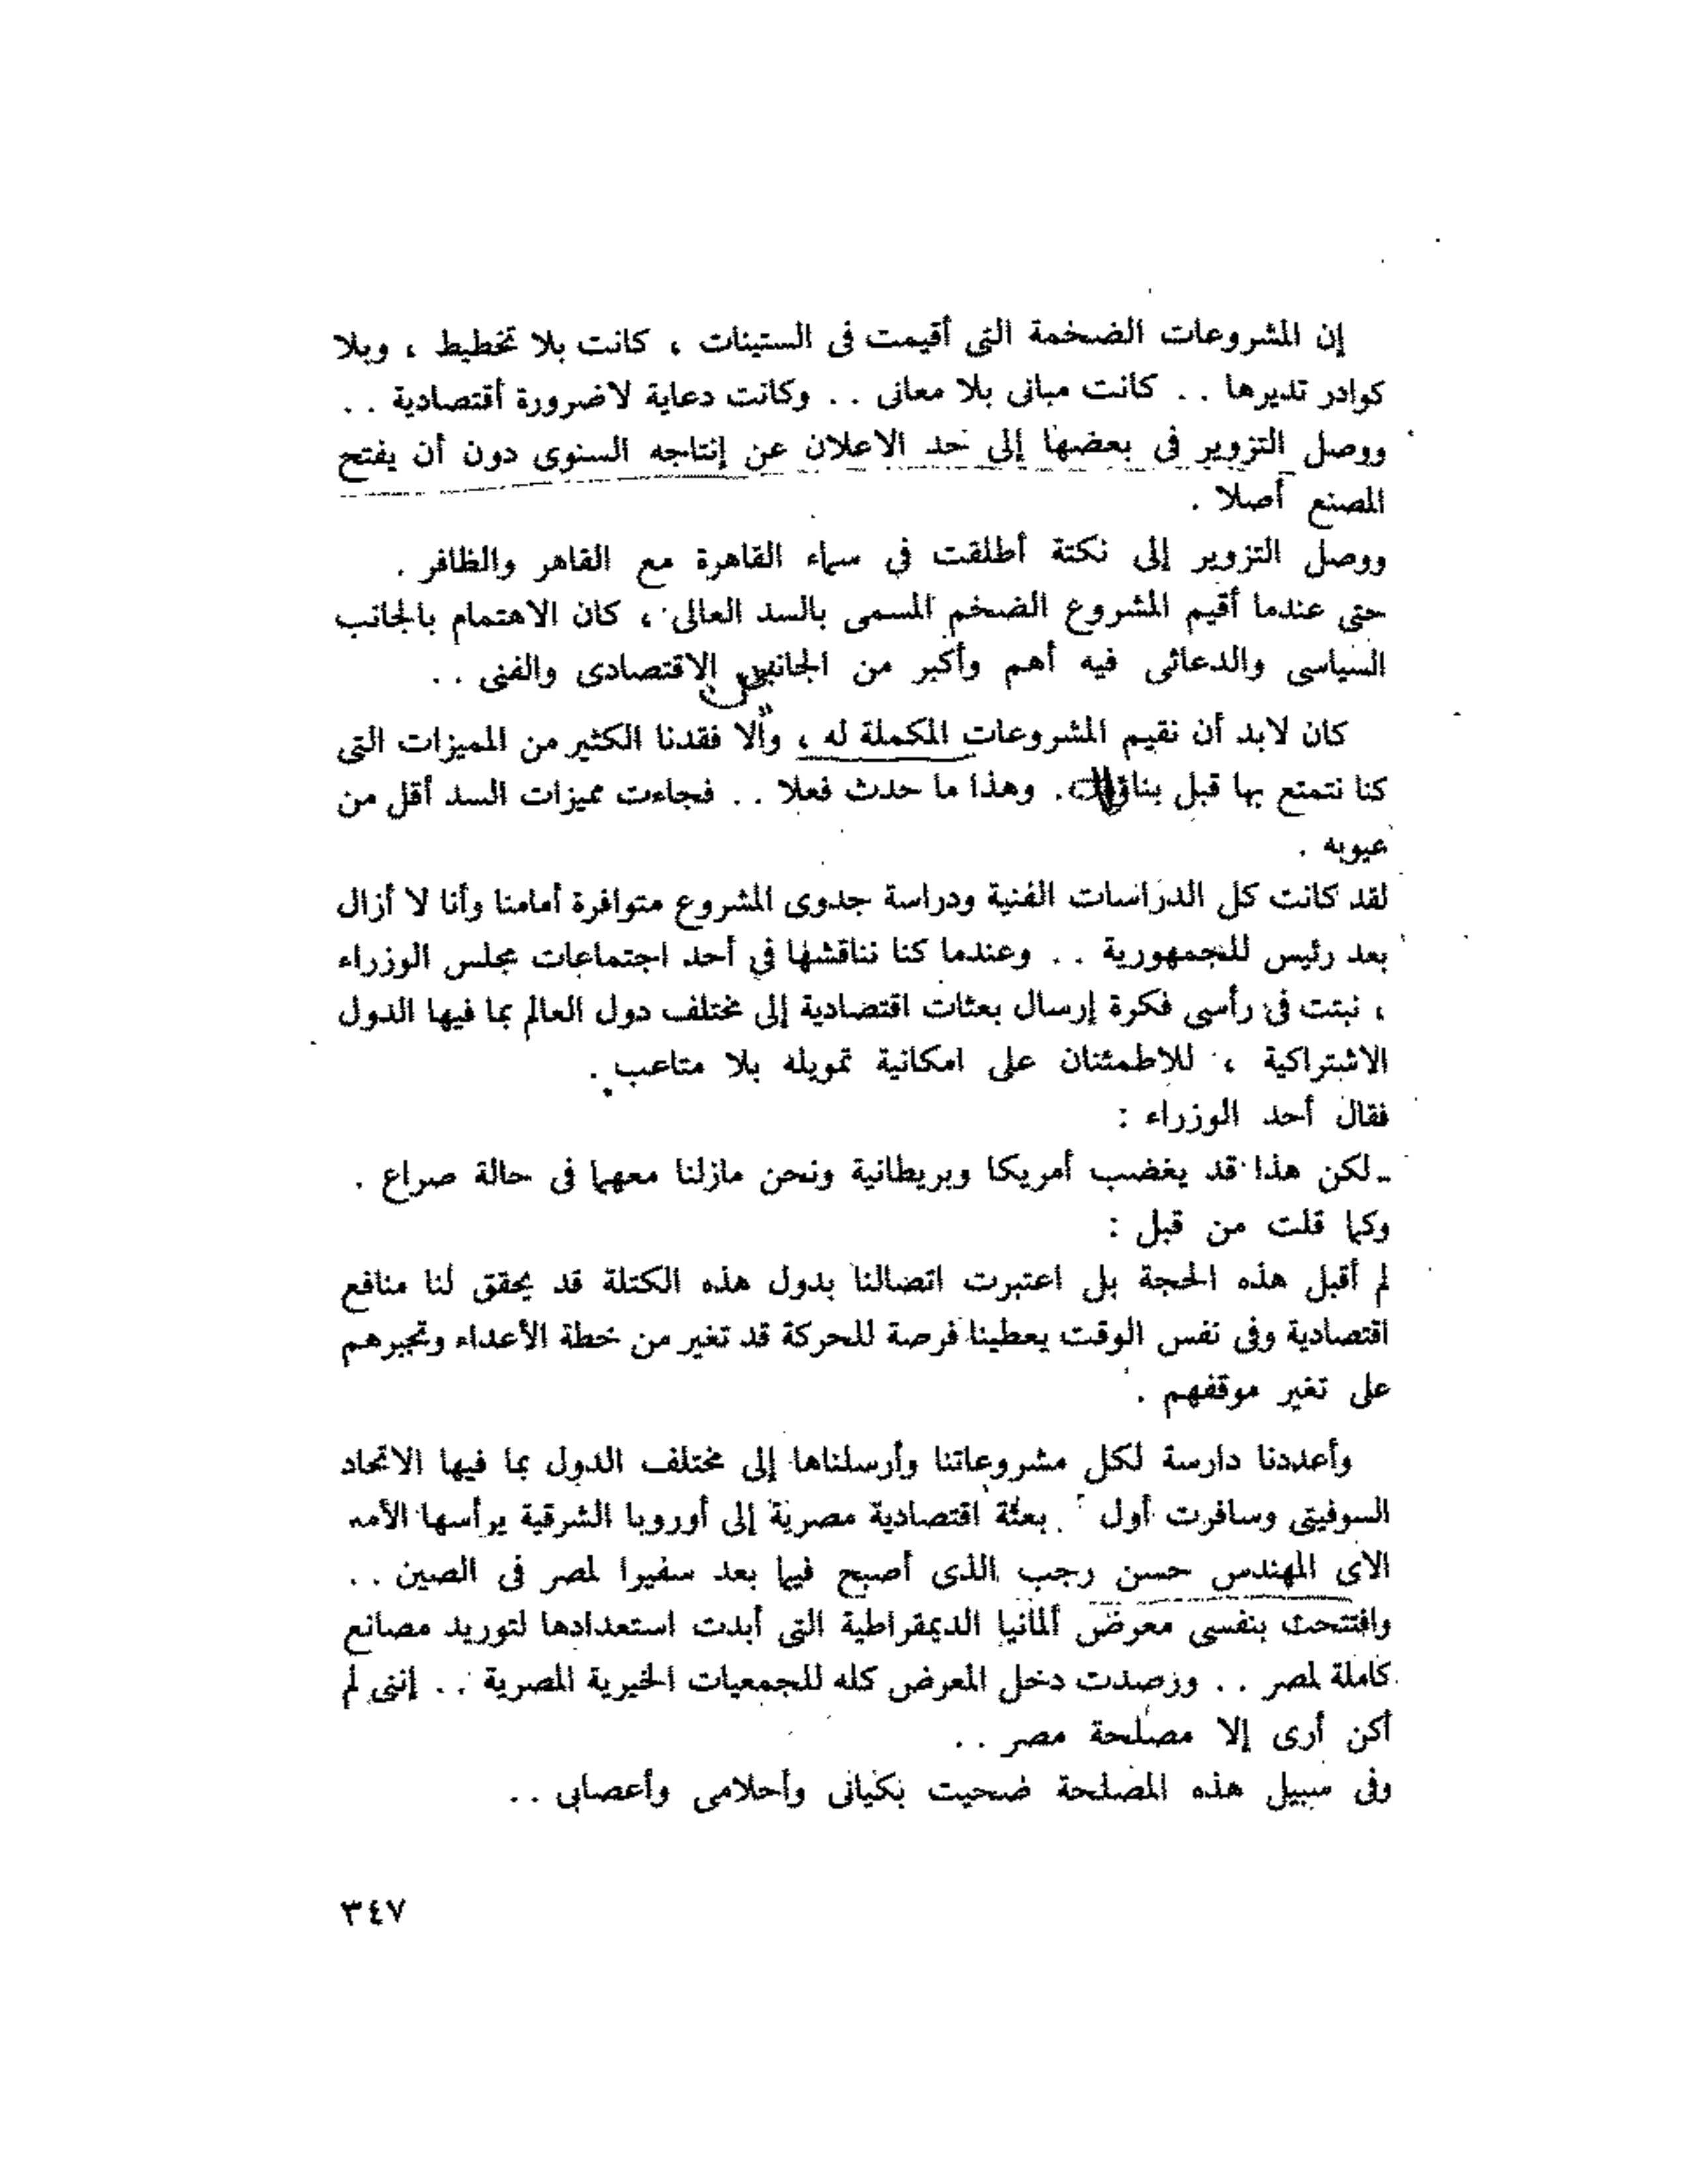 إن المشروعات الضخمة التى أقيمت فى الستينات ، كانت بلا تخطيط ، وبلا
كوادر تديرها . . كانت مبانى بلا معانى . . وكانت دعاية لاضرورة أقتصادية . .
ووصل التزوير فى بعضها إلى حد الاعلان عن إنتاجه السنوى دون أن يفتح
المصنع أصلا .
ووصل التزوير إلى نكتة أطلقت فى سماء القاهرة مع القاهر والظافر .
حتى عندما أقيم المشروع الضخم المسمى بالسد العالى ، كان الاهتمام بالجانب
السياسى والدعائى فيه أهم وأكبر من الجانبين الاقتصادى والفنى . .
كان لابد أن نقيم المشروعات المكملة له ، وألا فقدنا الكثير من المميزات التى
كنا نتمتع بها قبل . وهذا ما حدث فعلا . . فجاءت مميزات السد أقل من
عيوبه .
لقد كانت كل الدراسات الفنية ودراسة جدوى المشروع متوافرة أمامنا وأنا لا أزال
بعد رئيس للجمهورية . . وعندما كنا نناقشها فى أحد اجتماعات مجلس الوزراء
، نبتت فى رأسى فكرة إرسال بعثات اقتصادية إلى مختلف دول العالم بما فيها الدول
الاشتراكية ، للاطمئنان على امكانية تمويله بلا متاعب .
فقال أحد الوزراء :
ـ لكن هذا قد يغضب أمريكا وبريطانية ونحن مازلنا معهما فى حالة صراع .
وكما قلت من قبل :
لم أقبل هذه الحجة بل اعتبرت اتصالنا بدول هذه الكتلة قد يحقق لنا منافع
اقتصادية وفى نفس الوقت يعطينا فرصة للحركة قد تغير من خطة الأعداء وتجبرهم
على تغير موقفهم .
وأعددنا دارسة لكل مشروعاتنا وأرسلناها إلى مختلف الدول بما فيها الاتحاد
السوفيتى وسافرت أول بعثة اقتصادية مصرية إلى أوروبا الشرقية يرأسها
الاى المهندس حسن رجب الذى أصبح فيما بعد سفيرا لمصر فى الصين . .
وافتتحت بنفسى معرض ألمانيا الديمقراطية التى أبدت استعدادها لتوريد مصانع
كاملة لمصر . . ورصدت دخل المعرض كله للجمعيات الخيرية المصرية . . إننى لم
أكن أرى إلا مصلحة مصر . .
وفى سبيل هذه المصلحة ضحيت بكيانى وأحلامى وأعصابى . .
٣٤٧